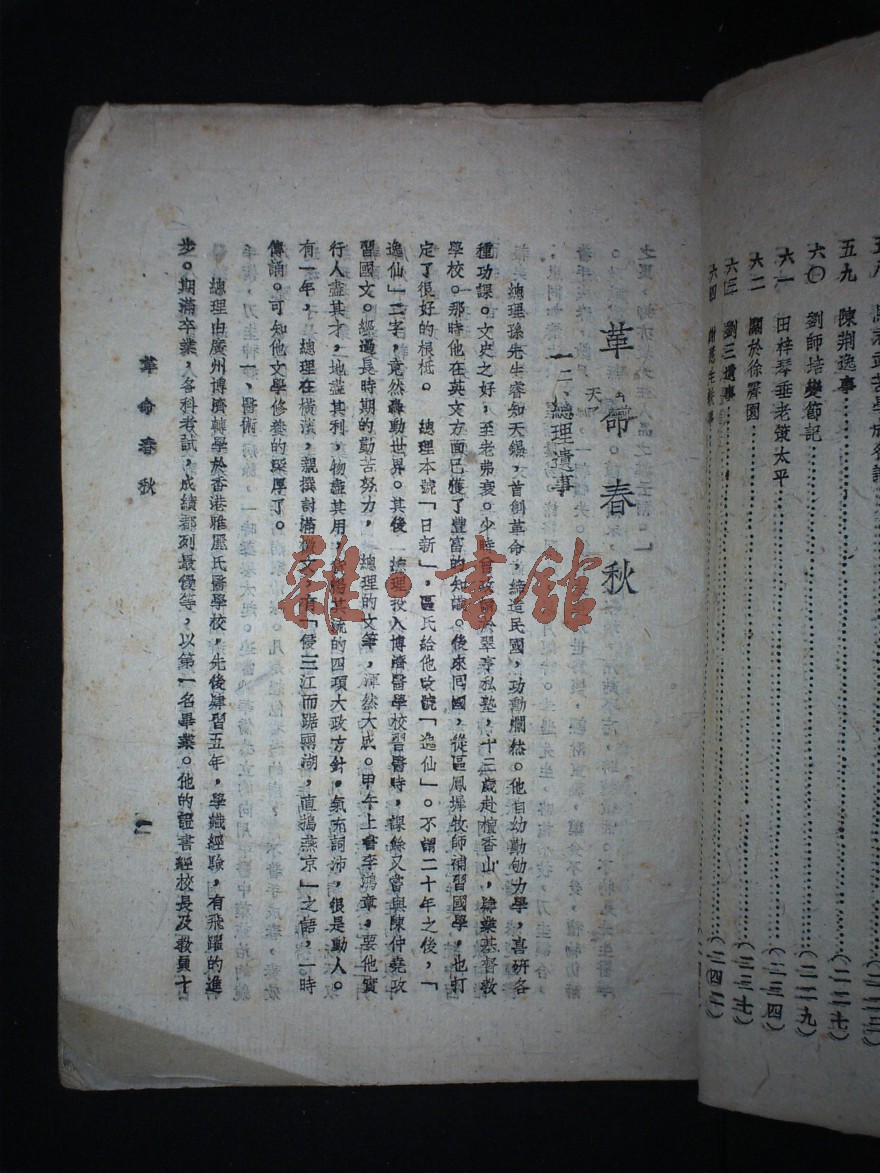 五九 陳荆逸事……(二二七)
六〇 劉師培變節記……(二二九)
六一 田梓琴垂老策太平……(二三四)
六二 關於徐霽園……(二三七)
六三 劉三遺事
六四……(二四二)
革命春秋
一二、總理遺事
總理孫先生睿知天錫，首創革命，締造民國，功勳爛然。他自幼勤劬力學，喜研各
種功課。文史之好，至老弗衰。少時曾於翠亨私塾，十三歲赴檀香山，肄業基督教
學校。那時他在英文方面已獲了豐富的知識。後來回國，從區鳳墀牧師補習國學，也打
定了很好的根柢。 總理本號「日新」，區氏給他改號「逸仙」。不謂二十年之後，「
逸仙」二字，竟然轟動世界。其後 總理投入博濟醫學校習醫時，課餘又嘗與陳仲堯攻
習國文。經過長時期的勤苦努力， 總理的文筆，渾然大成。甲午上書李鴻章，要他實
行人盡其才，地盡其利，物盡其用，流的四項大政方針，氣充詞沛，很是動人。
有一年， 總理在橫濱，親撰討滿檄文，有「侵三江而踞兩湖，直搗燕京」之語，一時
傳誦。可知他文學修養的深厚了。
總理由廣州博濟轉學於香港雅麗氏醫學校，先後肄習五年，學識經驗，有飛躍的進
步。期滿卒業，各科考試，成績都列最優等，以第一名畢業。他的證書經校長及教員十
革命春秋
一
雜·書館